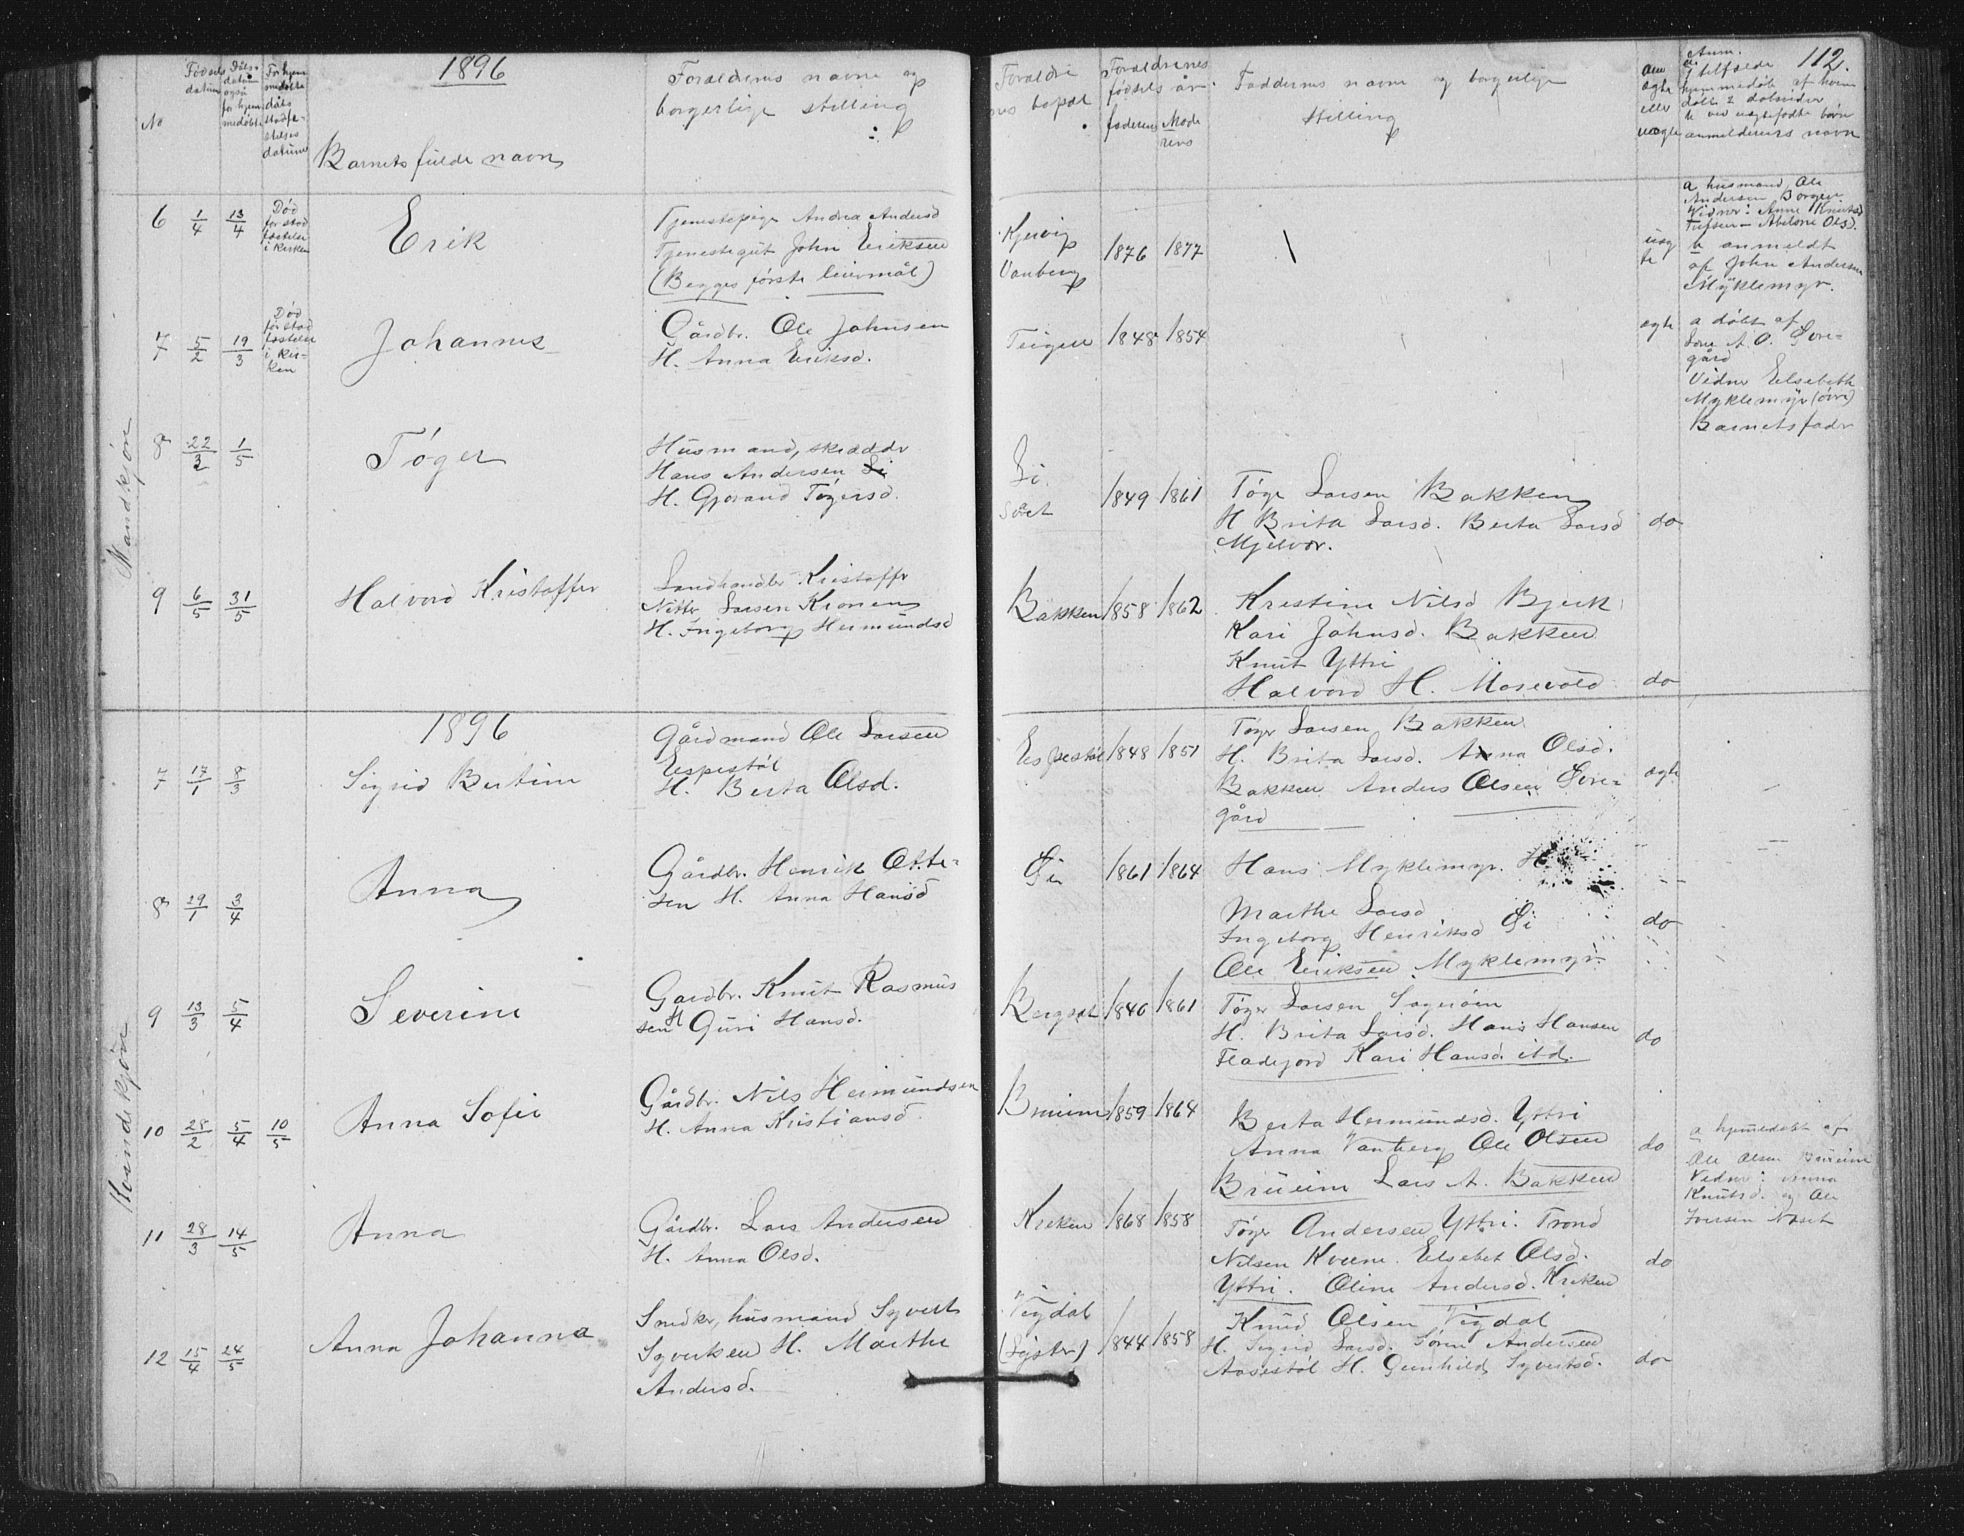 112.
1896
No
Fødsels datum
Dåbs-datum også for hjemmedøbte
For hjemmedøbte dåbs stadfæstelses datum
Barnets fulde navn
Forældrenes navne og borgerlige stilling
Forældrenes bopæl
Forældrenes fødsels år
faderens
Moderens
Faddernes navne og borgerlige stilling
Om ægte eller uægte
Anm.
a
I tilfælde hjemmedøbt af hvem døbt 2 dåbsvidner
b ved uægtefødte børn anmelderens navn
Mandkjøn
6 1/4 13/4
Død før stadfæstelse i kirken
Erik
Tjenestepige Andrea Andersd
Tjenestegut John Eriksen
(Begges første leiermål)
Kjervig
Vanberg
1876 1877
uægte
a husmand Ole
Andersen Borgen
Vidner: Anne Knutsd
Tufsen – Abelone Olsd.
b anmeldt
af John Andersen
Myklemyr.
7 5/2 19/3
Død før stadfæstelse i kirken
Johannes
Gårdbr. Ole Johnsen
H. Anna Eriksd.
Teigen
1848 1854
ægte
a døbt af
Lars A. O. Øvregård
Vidner Elsebeth
Myklemyr (øvre)
Barnets fader
8 22/3 1/5
Tøger
Husmand, skrædder
Hans Andersen Li
H. Gjorand Tøgersd.
Li
1849 1861
Tøger Larsen Bakken
H Brita Larsd. Berta Larsd
Mjelvær.
do
9 6/5 31/5
Halvord Kristoffer
Landhandler Kristoffer
Nitter Larsen Kronen
H. Ingeborg Hermundsd
Bakken
1858 1862
Kristine Nilsd Bjerk
Kari Johnsd. Bakken
Knut Yttri
Halvord H. Mosevold
do
Kvindekjøn
1896
7 17/1 8/3
Sigrid Bertine
Gårdmand Ole Larsen
Espestøl
H. Berta Olsd.
Espestøl
1848 1851
Tøger Larsen Bakken
H. Brita Larsd. Anna Olsd.
Bakken Anders Olsen Øvre-
gård
ægte
8 29/1 3/4
Anna
Gårdbr. Henrik Otte-
sen H. Anna Hansd
Øi
1861 1864
Hans Myklemyr. H
Marthe Larsd
Ingeborg Henriksd Øi
Ole Eriksen Myklemyr.
do
9 13/3 5/4
Severine
Gardbr. Knut Rasmus
sen H Guri Hansd.
Bergset
1840 1861
Tøger Larsen Sagerøen
H. Brita Larsd. Hans Hansen
Fladejord Kari Hansd. itd.
do
10 28/2 5/4 10/5
Anna Sofie
Gårdbr. Nils Hermundsen
H. Anna Kristiansd
Bruum
1859 1864
Berta Hermundsd. Yttri
Anna Vanberg Ole Olsen
Brueim Lars A. Bakken
do
a hjemmedøbt af
Ole Olsen Brueim
Vidner: Anna
Knutsd. og Ole
Iversen Næset
11 28/3 14/5
Anna
Gårdbr. Lars Andersen
H. Anna Olsd.
Kreken
1868 1858
Tøger Andersen Yttri. Trond
Nilsen Kveene. Elsebet Olsd.
Yttri. Oline Andersd. Kreken
do
12 15/4 24/5
Anna Johanna
Snedker, husmand Syvert
Syversen H. Marthe
Andersd.
Vigdal
(Lyster)
1844 1858
Knud Olsen Vigdal
H. Sigrid Larsd. Søren Andersen
Aasestøl H. Gunhild Syvertsd.
do